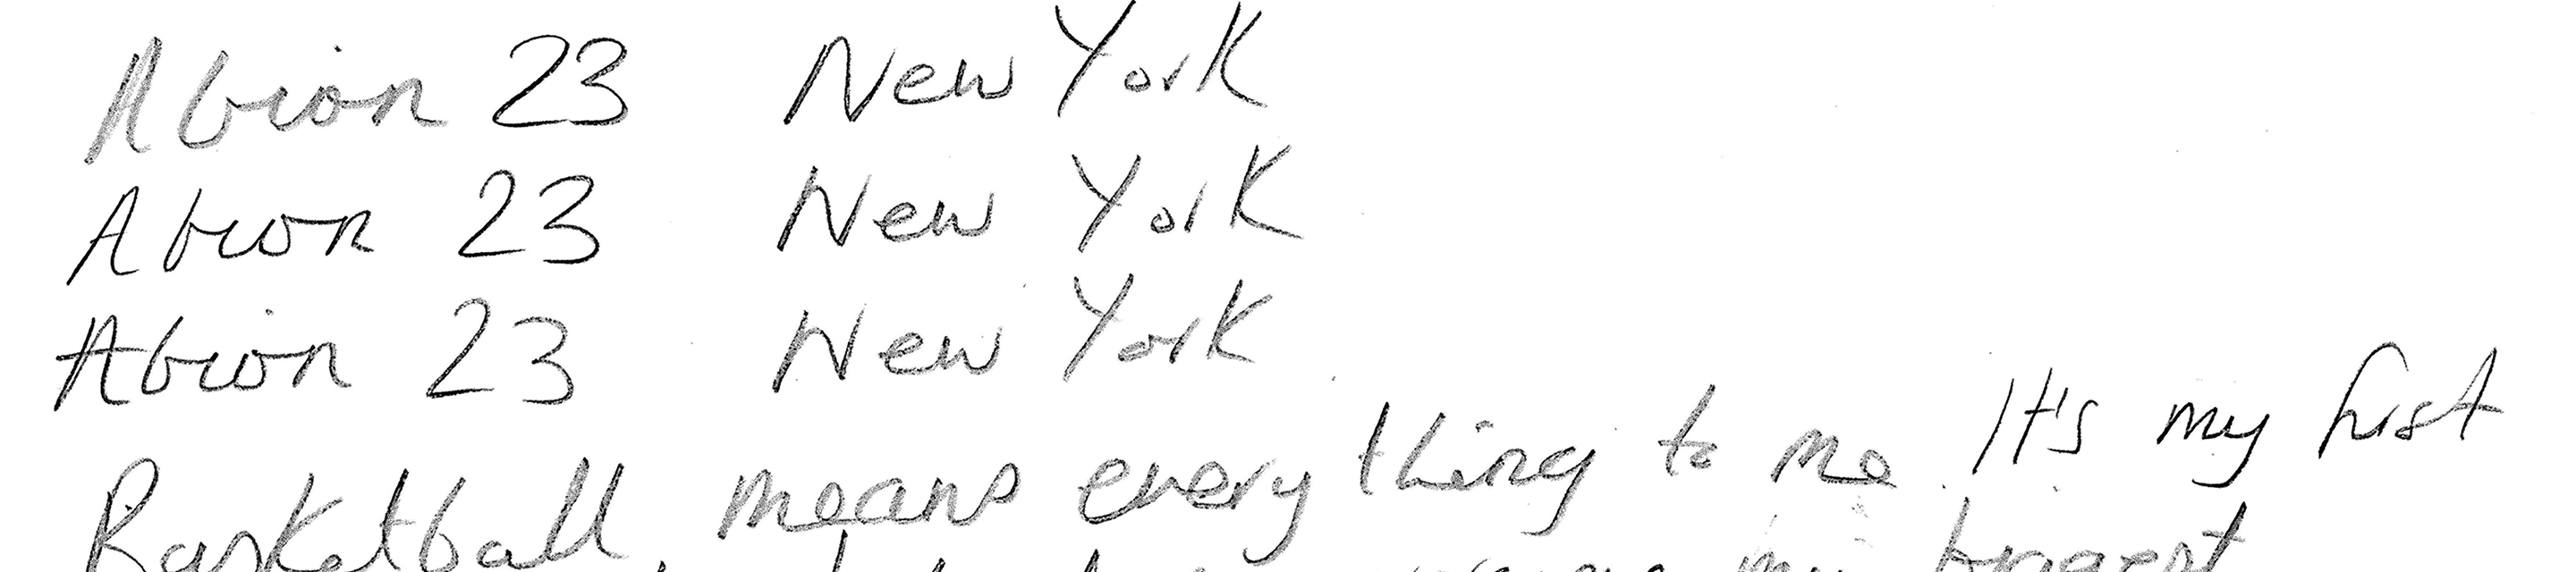 Abion 23 New York
Abion 23 New York
Abion 23 New York
Basketball means every thing to me. It's my first
my biggest